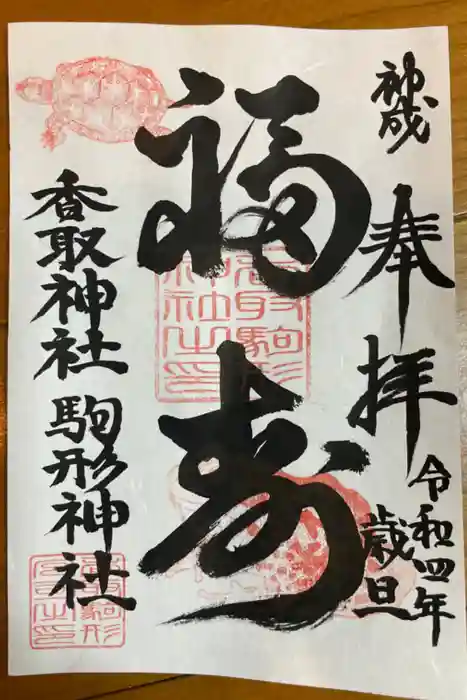 神威
奉拝
令和四年
歳旦
福寿
香取神社 駒形神社